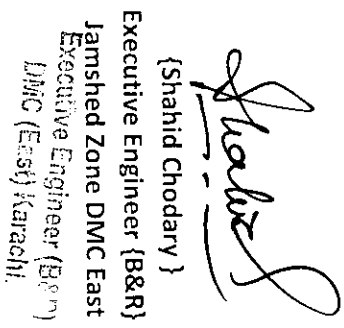 Shahid
{Shahid Chodary }
Executive Engineer {B&R}
Jamshed Zone DMC East
Executive Engineer (B&R)
DMC (East) Karachi.